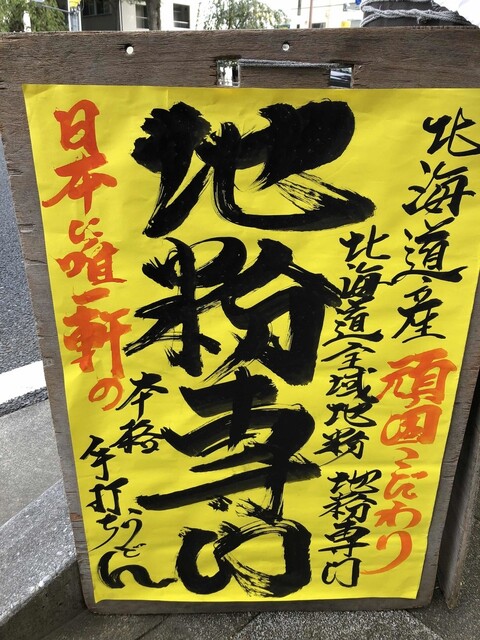 北海道産
頑固こだわり
北海道全域地粉
地粉専門
地粉専門
日本で唯一軒の
本格
手打ちうどん